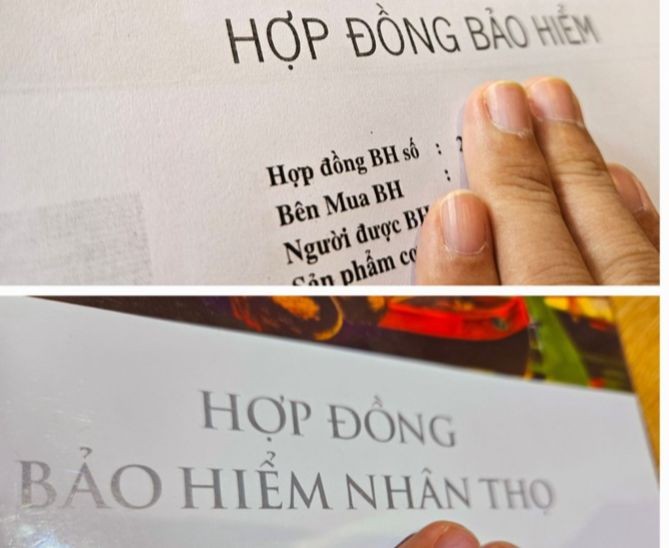 HỢP ĐỒNG BẢO HIỂM
Hợp đồng BH số :
Bên Mua BH :
Người được BH
Sản phẩm
HỢP ĐỒNG
BẢO HIỂM NHÂN THỌ